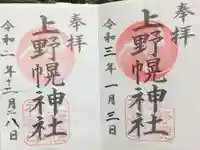 奉拝
上野幌神社
令和三年一月三日
奉拝
上野幌神社
令和二年二月二八日